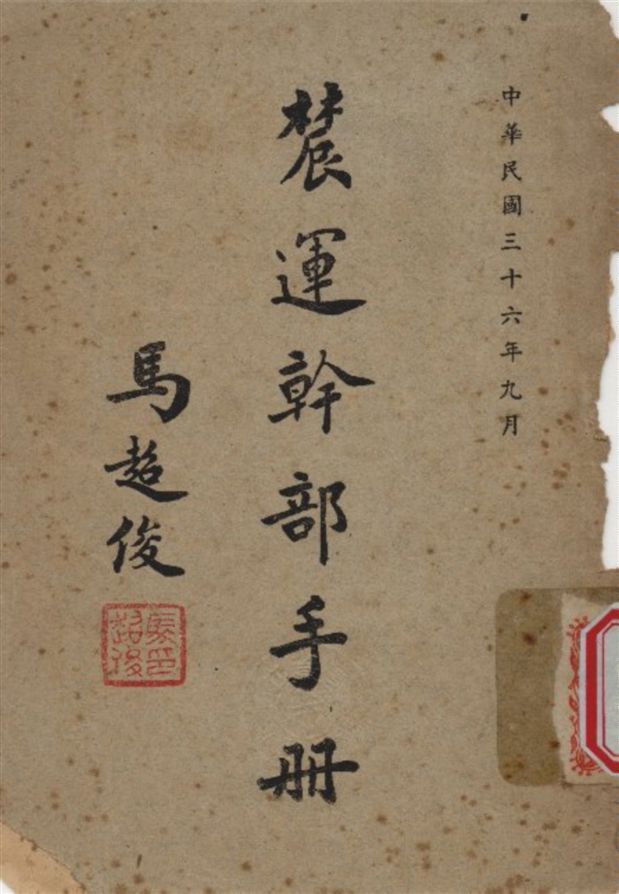 中華民國三十六年九月
辳運幹部手册
馬超俊
馬印
超俊